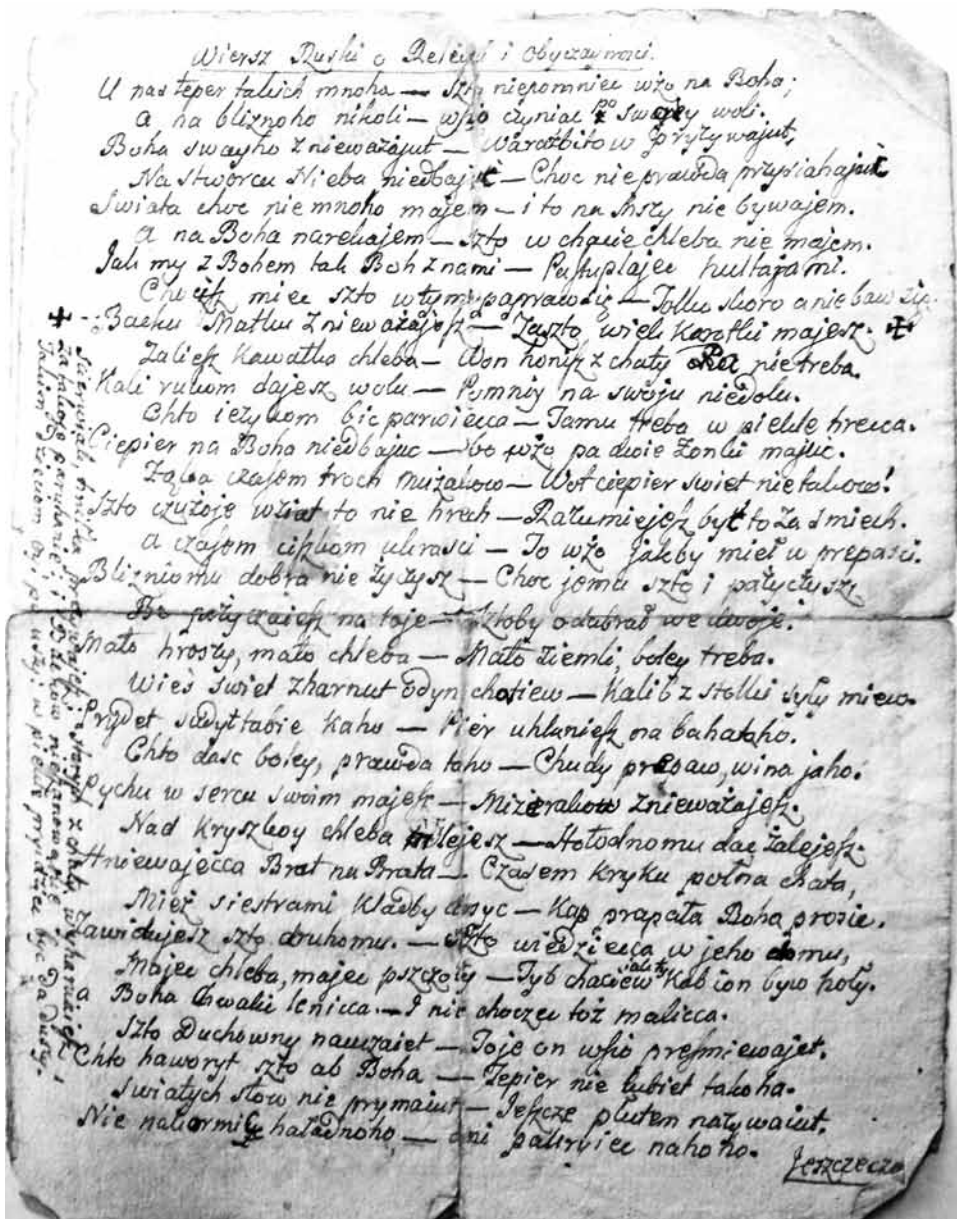 Wiersz Ruski o Religii i Obyczaynosci.
U nas teper takich mnoha — szto niepomniec wżo na Boha;
a na bliznoho nikoli — wsio czyniac po swojey woli.
Boha swayho znieważajut — Warażbitow pryzywajut,
Na stworcu Nieba niedbajut — Choc nieprawda przysiahajut
Swiata choc niemnoho majem — i to na Mszy nie bywajem.
a na Boha narekajem — szto w chacie chleba nie majem.
Jak my z Bohem tak Boh z nami — hultajami.
miec szto w tym paprawic — Tolko skoro a nie
Backu Matku znieważajesz — Zaszto wiek karotki majesz.
Żaliesz kawałka chleba — Won honisz z chaty nie treba.
Kali rukom dajesz wolu — Pomniy na swoju niedolu.
Chto iezykom bic — Tamu treba w piekle hrecca.
Ciepier na Boha niedbajuc — bo wżo pa dwie żonki majuc.
czasom troch mużykow — Wot ciepier swiet nietakow!
Szto czużoje wziat to nie hrech — Razumiejesz byt to za smiech.
a czasom ciszkom ukrasci — To wżo jakby mieł w prepasci.
Blizniomu dobra nie życzysz — Choc jomu szto i pażyczysz,
Bo pożyczaiesz na toje — sztoby odabrał we dwoje.
Mało hroszy, mało chleba — Mało ziemli, boley treba.
Wieś swiet zharnut odyn chatiew — Kalib z stolki syły miew.
Prydet sudyt tabie kaho — Pier uhlaniesz na bahataho.
Chto dasc boley, prawda taho — Chudy prapaw, wina jaho.
Pychu w sercu swoim majesz — Mizerakow znieważajesz.
Nad kryszkoy chleba mlejesz — Hołodnomu dac żalejesz.
Hniewajecca Brat na Brata — Czasem kryku połna chata,
Miez siestrami — Kap prapała Boha prosic.
Zawidujesz szto druhomu — szto wiedziecca w jeho domu,
Majec chleba, majec pszczoły — Tyb chaciew kab ion byw hoły.
Boha chwalic lenicca — I nie choczec toż malicca.
Szto Duchowny nauczaiet — Toje on wsio presmiewajet.
Chto haworyt szto ab Boha — Tepier nie lubiet takoha.
Swiatych słow nie prymaiut — Jeszcze plutem nazywaiut.
Nie nakormic haładnoho, — ani pakryiec nahoho.
Jeszczecze
i starych z chaty wyhaniaiesz,
Za takoje i Backow nieszanowanie,
Takim dzieciom pa uszy w piekle prydziec byc da duszy.